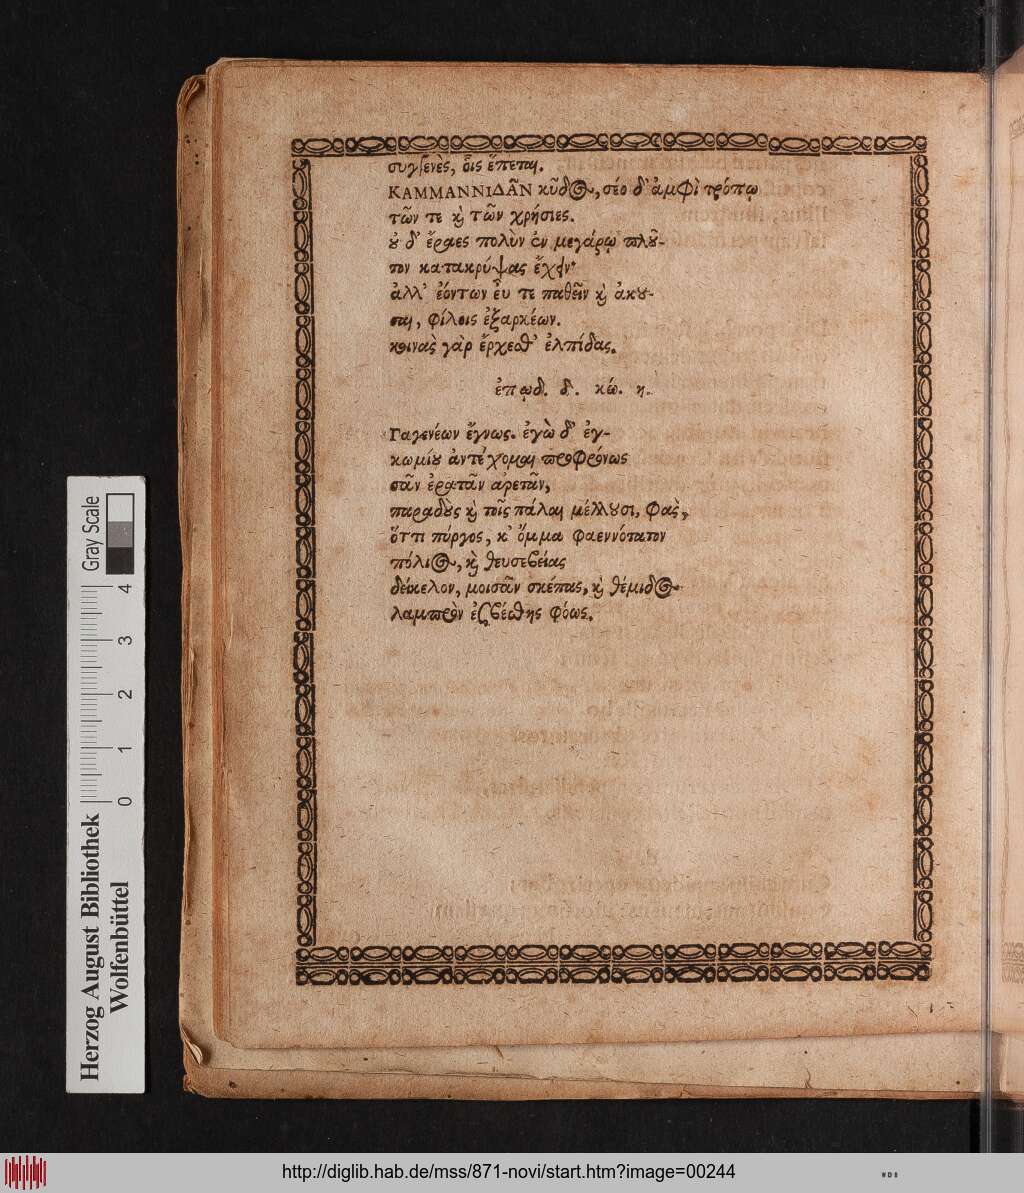 συγγενὲς, οἷς ἕπεται.
ΚΑΜΜΑΝΝΙΔΑ͂Ν κῦδος, σέο δ' ἀμφὶ τρόπῳ
τῶν τε καὶ τῶν χρήσιες.
οὐ δ' ἔραμαι πολὺν ἐν μεγάρῳ πλοῦ-
τον κατακρύψας ἔχειν·
ἀλλ' ἐόντων εὖ τε παθεῖν καὶ ἀκοῦ-
σαι, φίλοις ἐξαρκέων.
κοιναὶ γὰρ ἔρχεσθ' ἐλπίδας.
ἐπῳδ. δ. κώ. η.
Γαγενέων ἔγνως. ἐγὼ δ' ἐγ-
κωμίου ἀντέχομαι προφρόνως
σᾶν ἐρατᾶν ἀρετᾶν,
παραδοὺς καὶ τοῖς πάλαι μέλλουσι, φαὶ,
ὅττι πύργος, κ' ὄμμα φαεννότατον
πόλιος, καὶ θευσεβείας
δείκελον, μοισᾶν σκέπας, καὶ θέμιδος
λαμπρὸν ἐζβέσθης φόως.
Gray Scale
4
3
2
1
0
Herzog August Bibliothek
Wolfenbüttel
http://diglib.hab.de/mss/871-novi/start.htm?image=00244